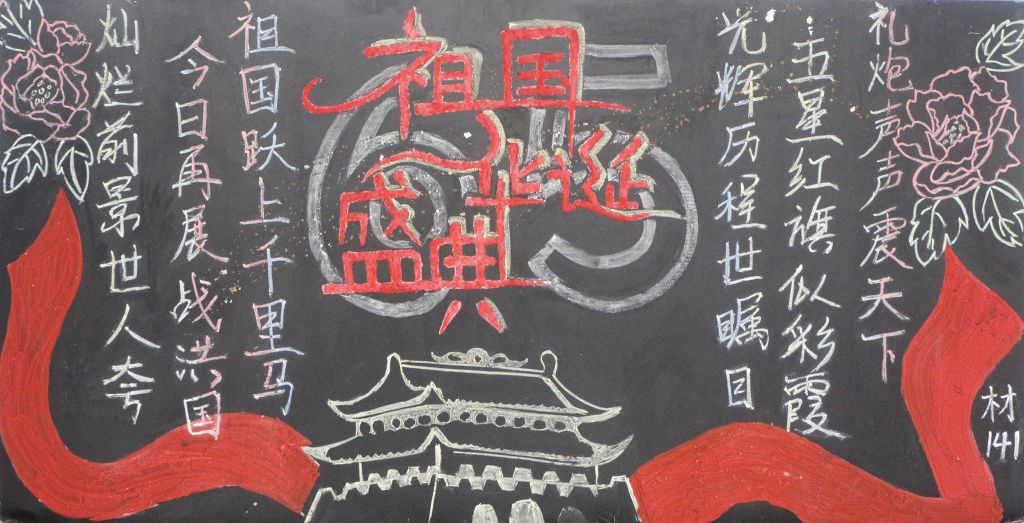 祖国
华诞
盛典
65
礼炮声声震天下
五星红旗似彩霞
光辉历程世瞩目
祖国跃上千里马
今日再展战洪国
灿烂前景世人夸
材
141